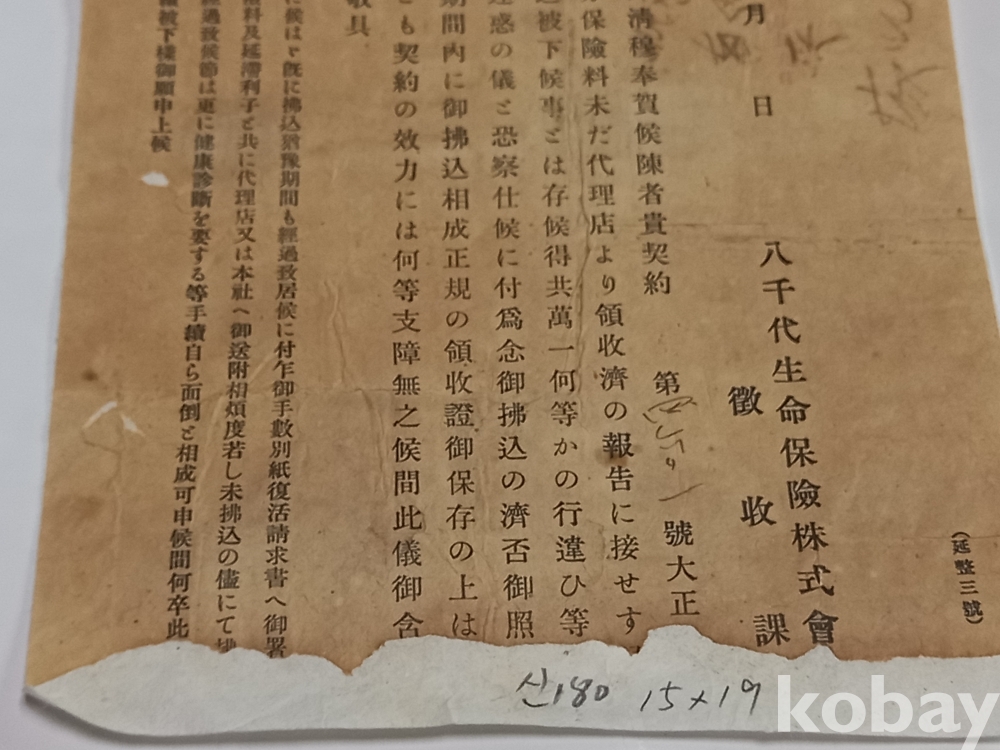 (延整三號)
八千代生命保險株式會
徵收課
月 日
第 號大正
清穆奉賀候陳者貴契約
保險料未だ代理店より領收濟の報告に接せす
被下候事とは存候得共萬一何等かの行違ひ等
惑の儀と恐察仕候に付爲念御拂込の濟否御照
期間內に御拂込相成正規の領收證御保存の上は
も契約の效力には何等支障無之候間此儀御含
敬具
に候はゞ既に拂込猶豫期間も經過致居候に付乍御手數別紙復活請求書へ御署
料及延滯利子と共に代理店又は本社へ御送附相煩度若し未拂込の儘にて
經過致候節は更に健康診斷を要する等手續自ら面倒と相成可申候間何卒此
被下樣御願申上候
산180 15×19
kobay